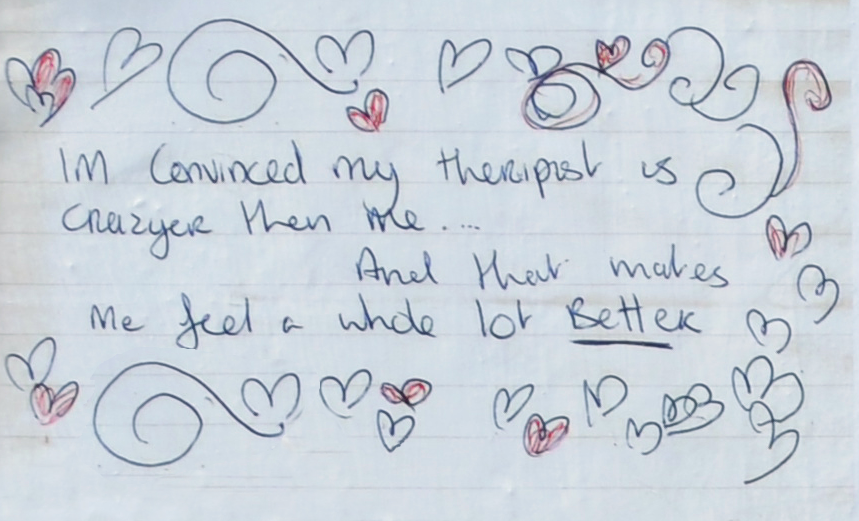 IM Convinced my theripist is
crazyer then me....
And that makes
Me feel a whole lot Better